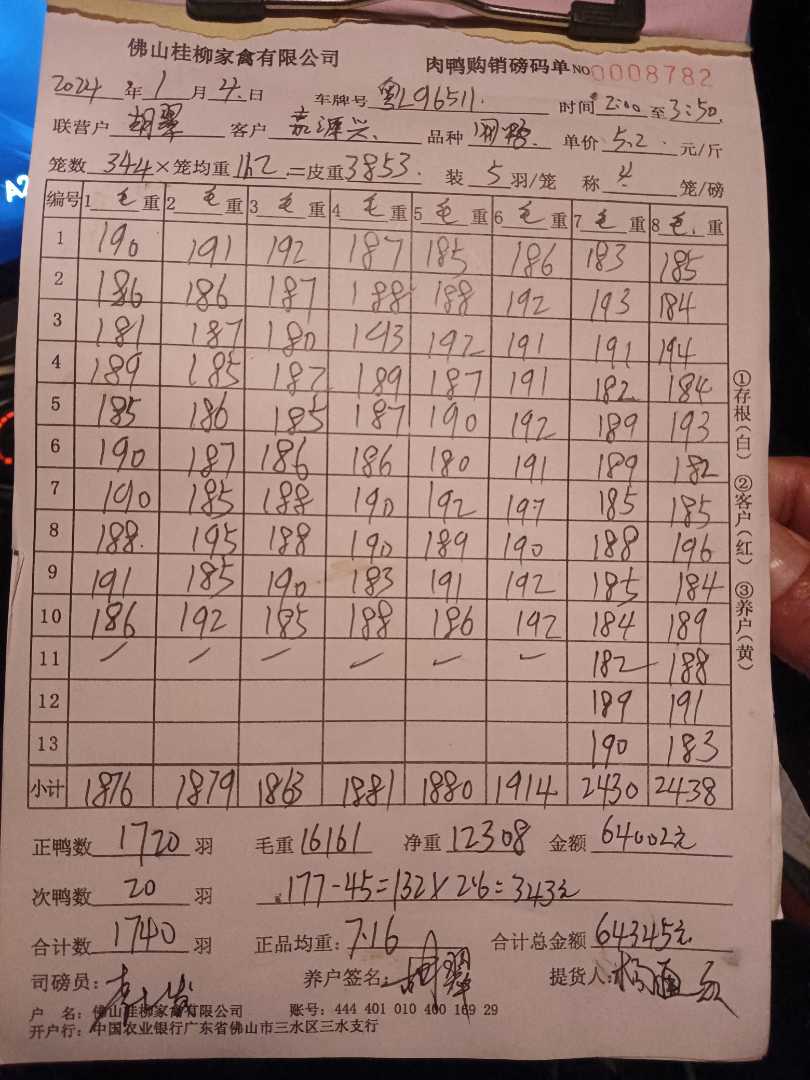 佛山桂柳家禽有限公司 肉鸭购销磅码单 NO 0008782
2024年1月4日 车牌号 粤L96511. 时间 2:00 至 3:50.
联营户 胡翠 客户 嘉源兴. 品种 单价 5.2. 元/斤
笼数 344 × 笼均重 11.2 = 皮重 3853. 装 5 羽/笼 称 4 笼/磅
编号 1 毛 重 2 毛 重 3 毛 重 4 毛 重 5 毛 重 6 毛 重 7 毛 重 8 毛. 重
1 190 191 192 187 185 186 183 185
2 186 186 187 188 188 192 193 184
3 181 187 180 193 192 191 191 194
4 189 185 187 189 187 191 182 184
5 185 186 185 187 190 192 189 193
6 190 187 186 186 180 191 189 182
7 190 185 188 190 192 197 185 185
8 188. 195 188 190 189 190 188 196
9 191 185 190 183 191 192 185 184
10 186 192 185 188 186 192 184 189
11 — — — — — — 182 188
12 189 191
13 190 183
小计 1876 1879 1863 1881 1880 1914 2430 2438
正鸭数 1720 羽 毛重 16161 净重 12308 金额 64002元
次鸭数 20 羽 177-45=132×2.6=343元
合计数 1740 羽 正品均重: 7.16 合计总金额 64345元
司磅员: 养户签名: 胡翠 提货人:
户 名: 佛山桂柳家禽有限公司 账号: 444 401 010 400 169 29
开户行: 中国农业银行广东省佛山市三水区三水支行
①存根(白) ②客户(红) ③养户(黄)